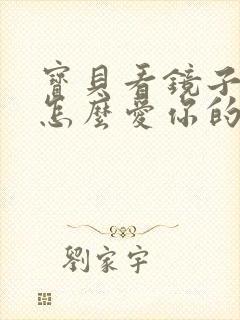 寶貝看鏡子
怎麼愛你的
劉家宇